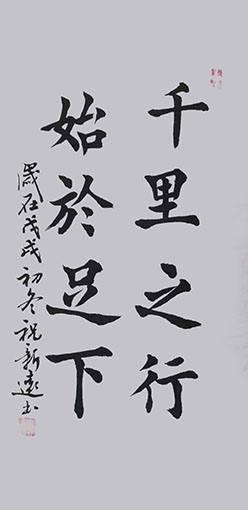 千里之行
始於足下
歲在戊戌初冬祝新运书